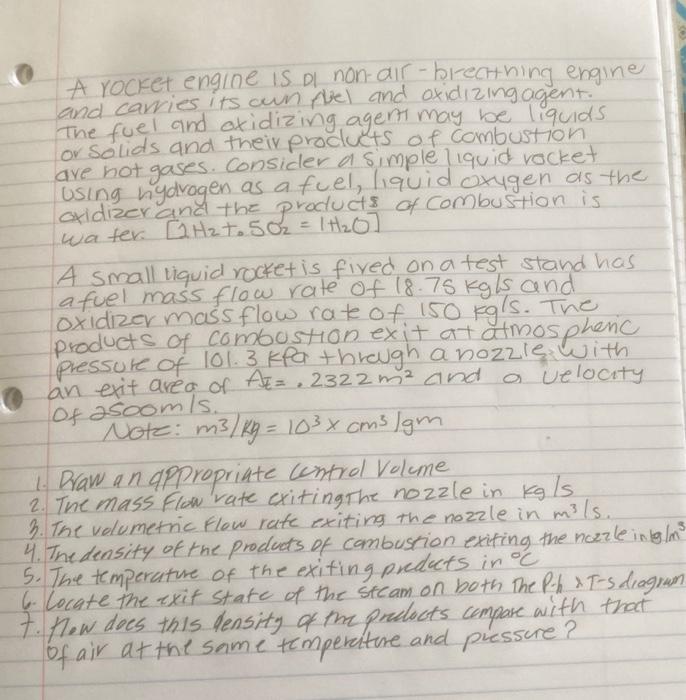 A rocket engine is a non-air-breathing engine
and carries its own fuel and oxidizing agent.
The fuel and oxidizing agent may be liquids
or solids and their products of combustion
are hot gases. Consider a simple liquid rocket
using hydrogen as a fuel, liquid oxygen as the
oxidizer and the products of combustion is
water. [1H2+.5O2 = 1H2O]
A small liquid rocket is fired on a test stand has
a fuel mass flow rate of 18.75 kg/s and
oxidizer mass flow rate of 150 kg/s. The
products of combustion exit at atmospheric
pressure of 101.3 kPa through a nozzle with
an exit area of AE= .2322 m² and a velocity
of 2500m/s.
Note: m3/kg = 10³ x cm³/gm
1. Draw an appropriate control volume
2. The mass flow rate exiting the nozzle in kg/s
3. The volumetric flow rate exiting the nozzle in m³/s.
4. The density of the products of combustion exiting the nozzle in kg/m³
5. The temperature of the exiting products in °C
6. Locate the exit state of the steam on both the P-h & T-s diagram
7. How does this density of the products compare with that
of air at the same temperature and pressure?